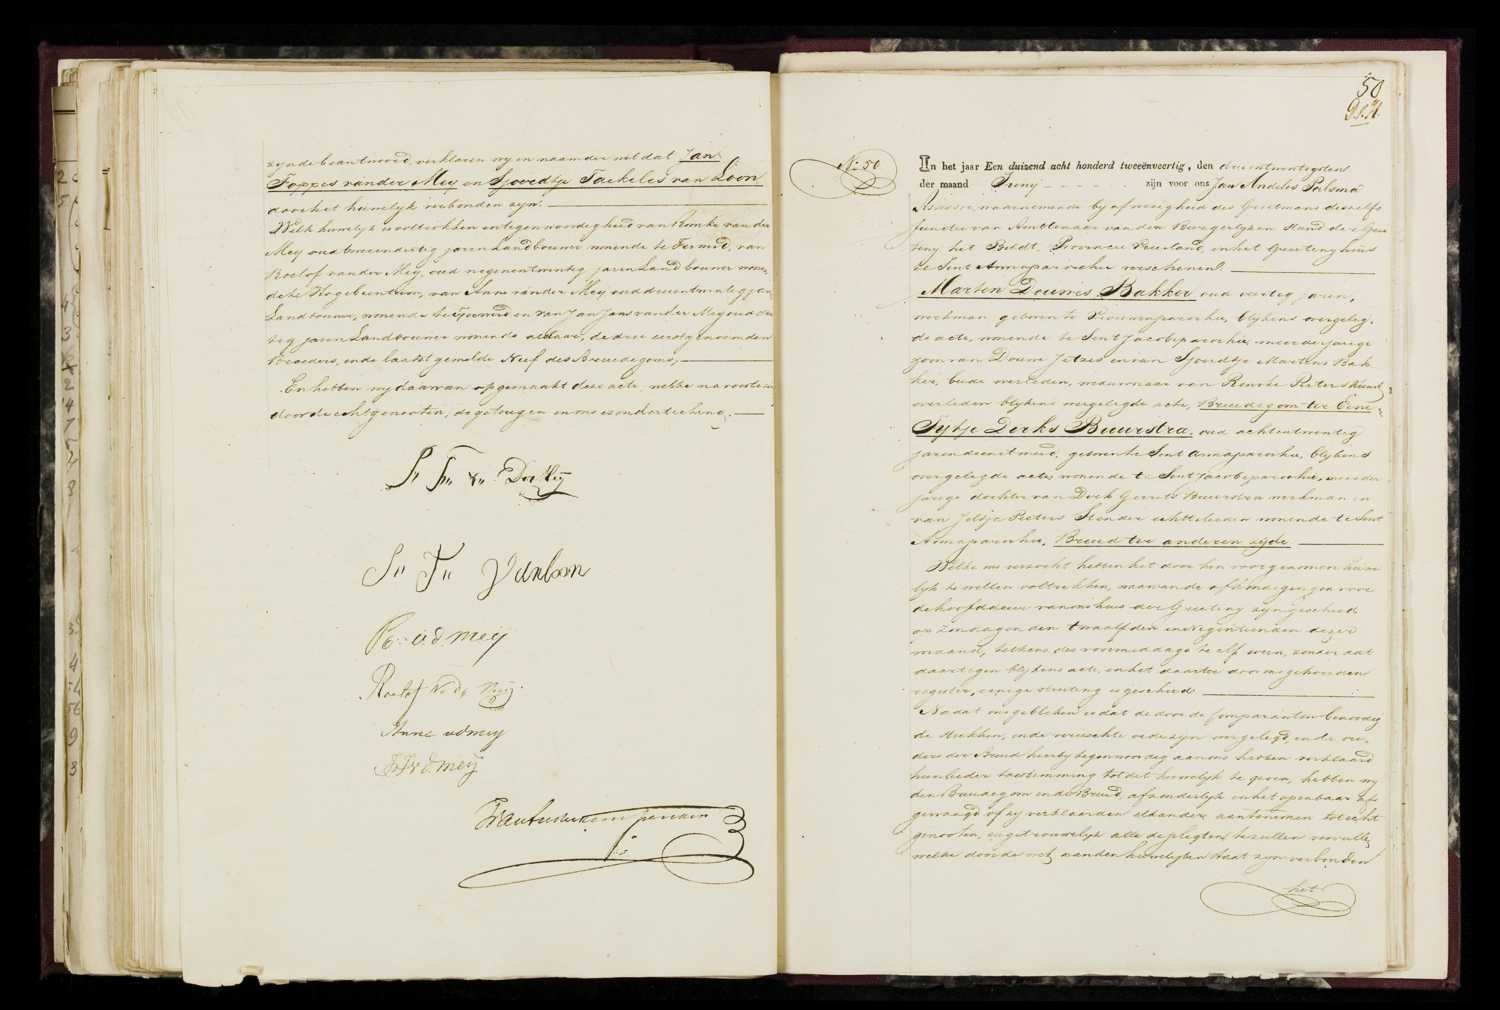 zynde beantwoord, verklaren wy in naam der wet dat Jan
Foppes van der Mey en Sjoerdtje Taekeles van Loon
door het huwelyk verbonden zyn.
Welk huwelyk is voltrokken in tegenwoordigheid van Romke van der
Mey oud tweeendertig jaren Landbouwer wonende te Ferwerd, van
Roelof van der Mey, oud negenentwintig jaren Landbouwer wonen-
de te Hogebeintum, van Anne van der Mey oud drieentwintig jaren
Landbouwer, wonende te Ferwerd en van Jan Jans van der Mey oud der
tig jaren Landbouwer wonende aldaar, de drie eerstgenoemden
Broeders, en de laatst gemelde Neef des Bruidegoms,
En hebben wy daarvan opgemaakt deze acte, welke na voorlezing
door de echtgenooten, de getuigen en ons is ondertekend.
J. F. v. Der Meij
S. T. Van Loon
Ro. v. d. Meij
Roelof v. d. Meij
Anne vd Meij
J J v d Meij
50
No. 50
In het jaar Een duizend acht honderd tweeënveertig, den drieentwintigsten
der maand Juny zijn voor ons Jan Andeles Palsma
Assessor, waarnemende by afwezigheid des Grietmans deszelfs
functie van Ambtenaar van den Burgerlyken Stand der Griete
teny het Bildt, Provincie Vriesland, in het Grietenyhuis
te Sint Annaparochie verschenen.
Marten Douwes Bakker oud veertig jaren,
workman geboren te Vrouwenparochie, blykens overgeleg-
de acte, wonende te Sint Jacobiparochie, meerderjarige
zoon van Douwe Jetzes en van Sjoerdtje Martens Bak
ker, beide overleden, weduwnaar van Renske Pieters
overleden blykens overgelegde acte, Bruidegom ter Eene
Tytje Derks Buwrstra, oud achtentwintig
jaren dienstmeid, geboren te Sint Annaparochie, blykens
overgelegde acte wonende te Sint Jacobiparochie, meerder
jarige dochter van Derk Gerrits Buurstra workman en
van Jeltje Pieters Stender echtelieden wonende te Sint
Annaparochie, Bruid ter anderen zyde
Welke ons verzocht hebben het door hen voorgenomen huwe
lyk te willen voltrekken, waarvan de afkondigingen voor
de hoofddeur van ons huis der Grieteny zyn geschied
op Zondagen den twaalfden en negentienden dezer
maand, telkens des voormiddags te elf uren, zonder dat
daartegen blykens acte, in het daartoe door ons gehouden
register, eenige stuiting is geschied.
Nadat ons gebleken is dat de door de Comparanten benoodig
de stukken, in de vereischte orde zyn overgelegd, en de ou-
ders der Bruid hierby tegenwoordig aan ons hebben verklaard
hun lieder toestemming tot dit huwelyk te geven, hebben wy
den Bruidegom en de Bruid, afzonderlyk en in het openbaar af-
gevraagd of zy verklaarden elkander aantenemen tot echt
genooten, en getrouwelyk alle de pligten te zullen vervullen
welke door de wet aan den huwelyken staat zyn verbonden
het